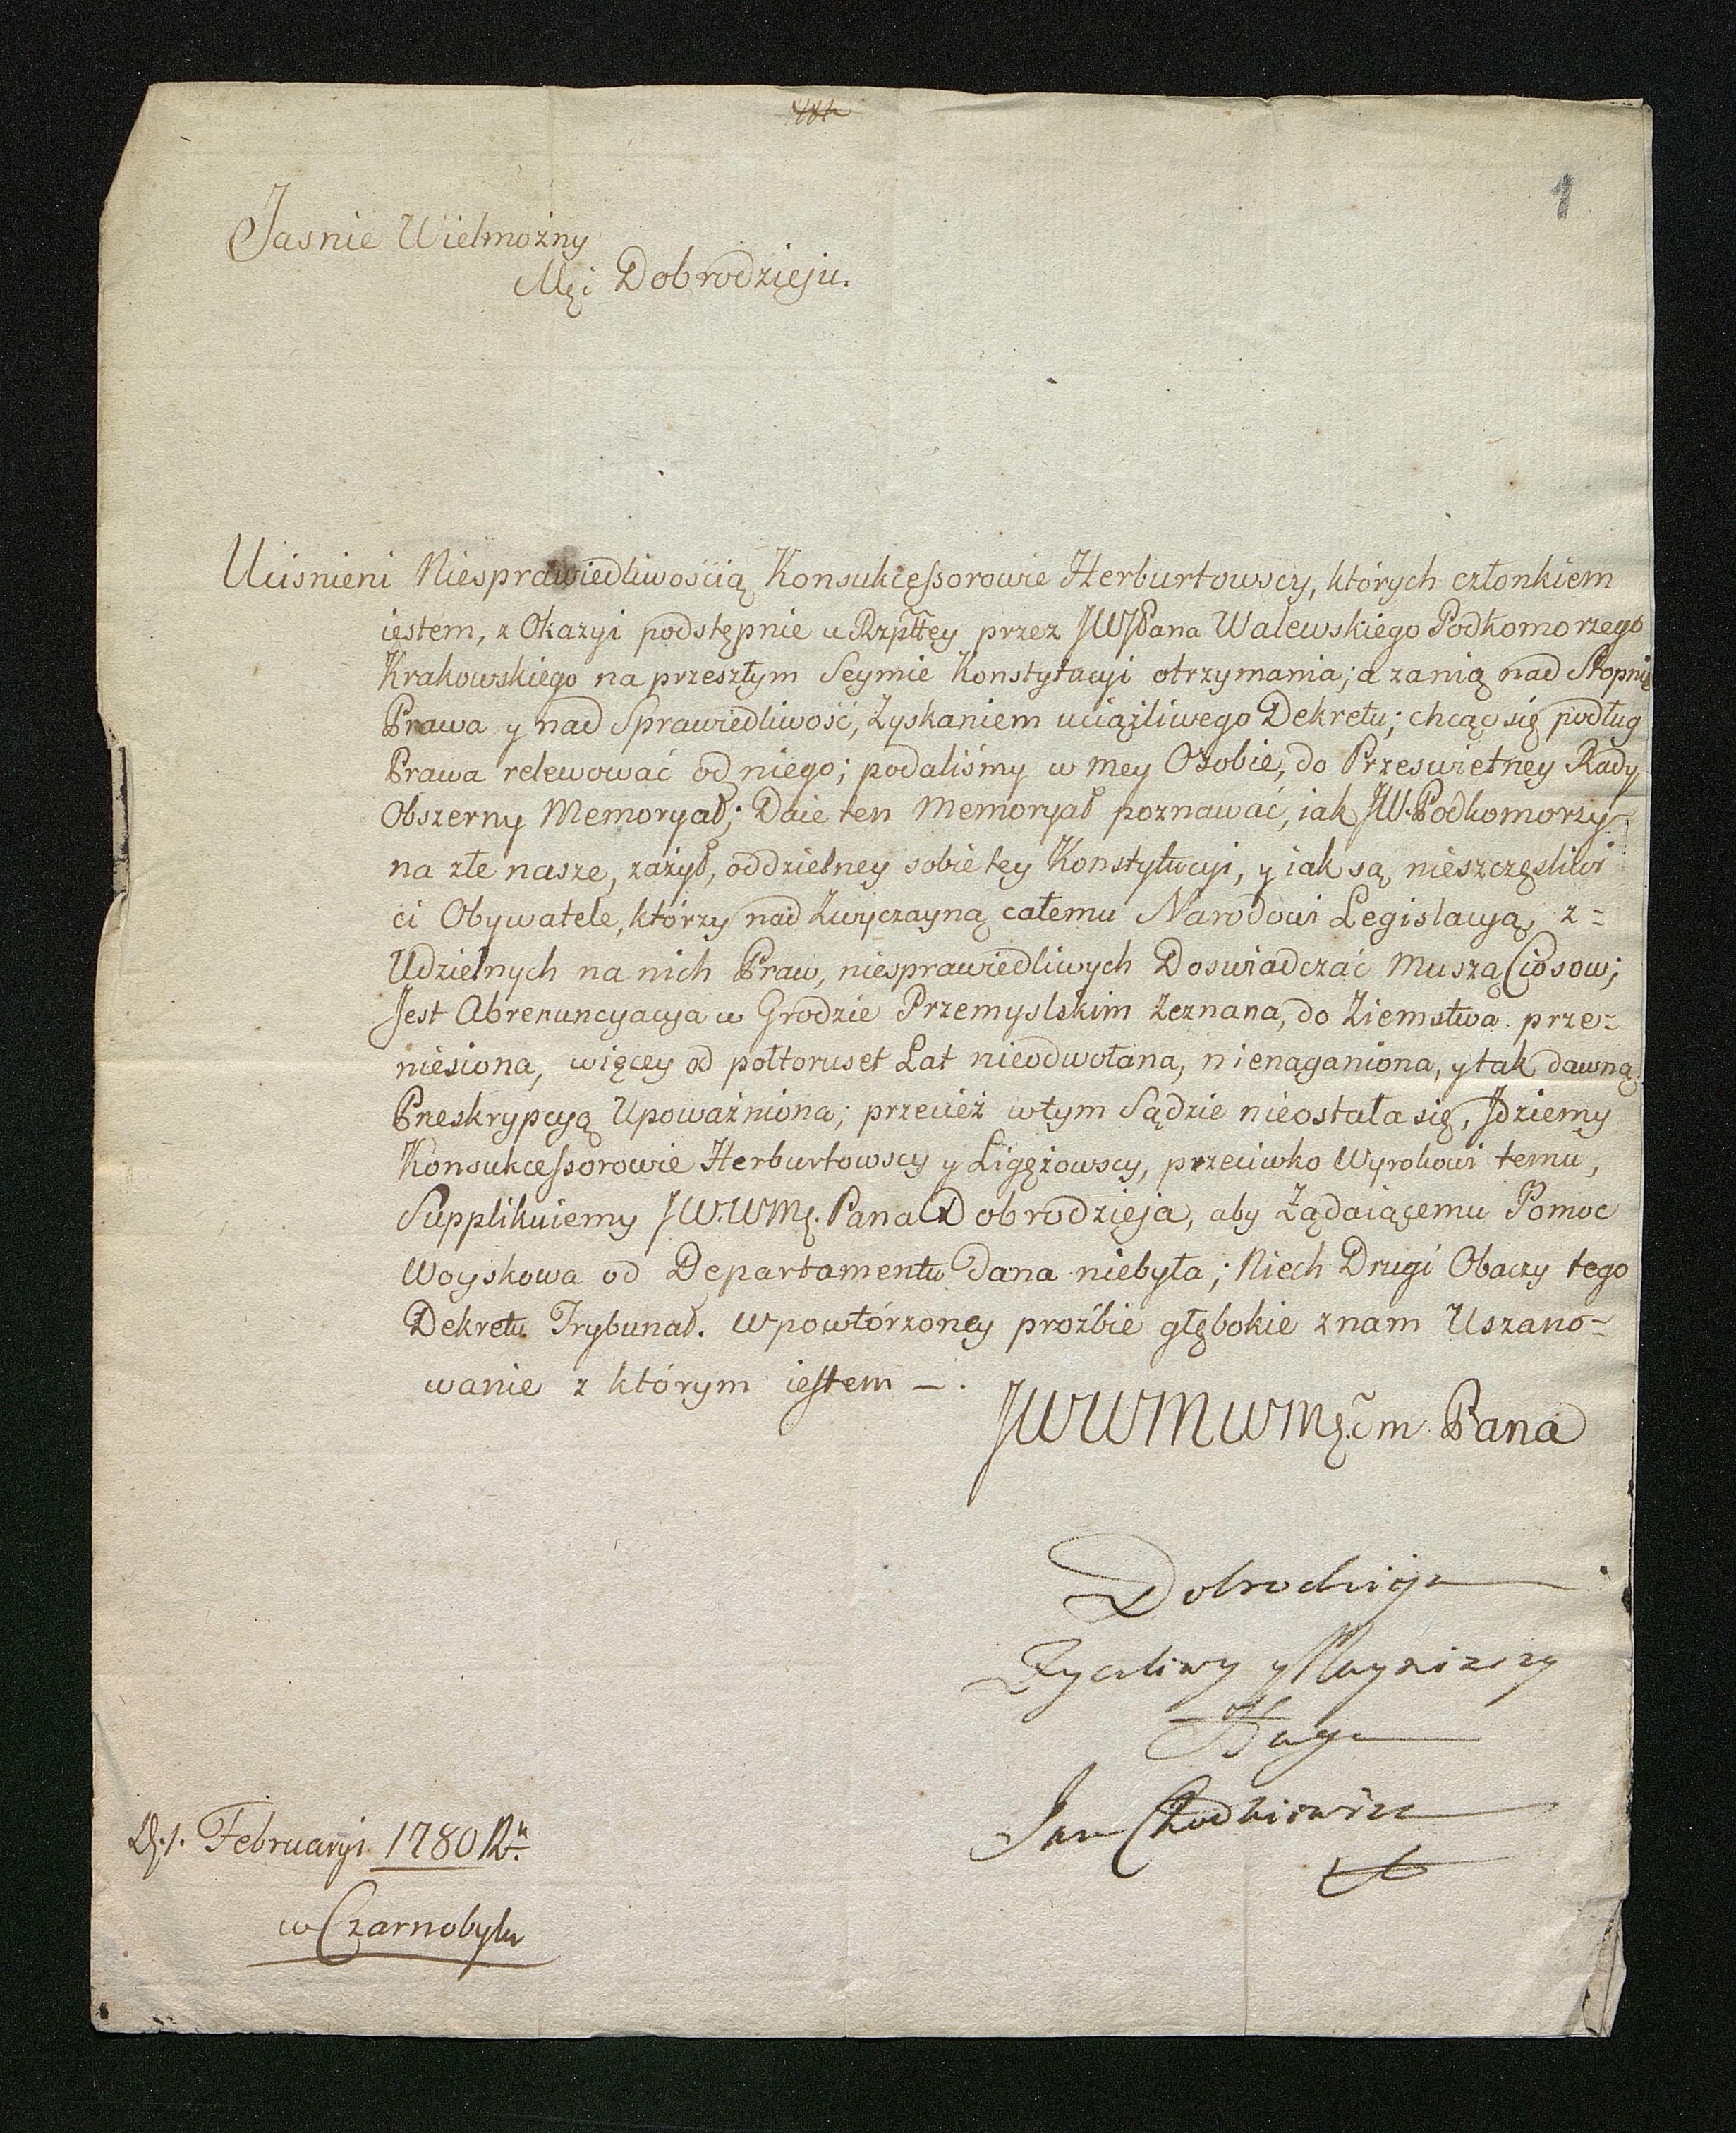 1
Jasnie Wielmożny
Mṣi Dobrodzieju.
Uciśnieni Niesprawiedliwością Konsukcessorowie Herburtowscy, których członkiem
iestem, z Okazyi podstępnie u Rzpltey przez JWJPana Walewskiego Podkomorzego
Krakowskiego na przeszłym Seymie Konstytucyi otrzymania; a zanią nad Stopnie
Prawa y nad Sprawiedliwość, Zyskaniem uciążliwego Dekretu; chcąc się podług
Prawa relewować od niego; podaliśmy w mey Osobie, do Przeswietney Rady
Obszerny Memoryał; Daie ten Memoryał poznawać, iak JW. Podkomorzy
na złe nasze, zażył, oddzielney sobie tey Konstytucyi, y iak są nieszczęsliwi
ci Obywatele, którzy nad Zwyczayną całemu Narodowi Legislacyą, z=
Udzielnych na nich Praw, niesprawiedliwych Doswiadczać Muszą Ciosow;
Jest Abrenuncyacya w Grodzie Przemyslskim Zeznana, do Ziemstwa prze=
niesiona, więcey od połtoruset Lat nieodwołana, nienaganiona, y tak dawną
Preskrypcyą Upoważniona; przecież wtym Sądzie nieostała się, Jdziemy
Konsukcessorowie Herburtowscy y Ligęzowscy, przeciwko Wyrokowi temu,
Supplikuiemy JW.WMṣ. Pana Dobrodzieja, aby Żądaiącemu Pomoc
Woyskowa od Departamentu dana niebyła; Niech Drugi Obaczy tego
Dekretu Trybunał. Wpowtórzoney proźbie głębokie znam Uszano=
wanie z którym iestem —.
JWWMWMṣ.m Pana
Dobrodzieja
Zyczliwy y Nayniższy
Sługa
Jan Chodkiewicz
D. 1. Februaryi 1780 Ru.
w Czarnobylu